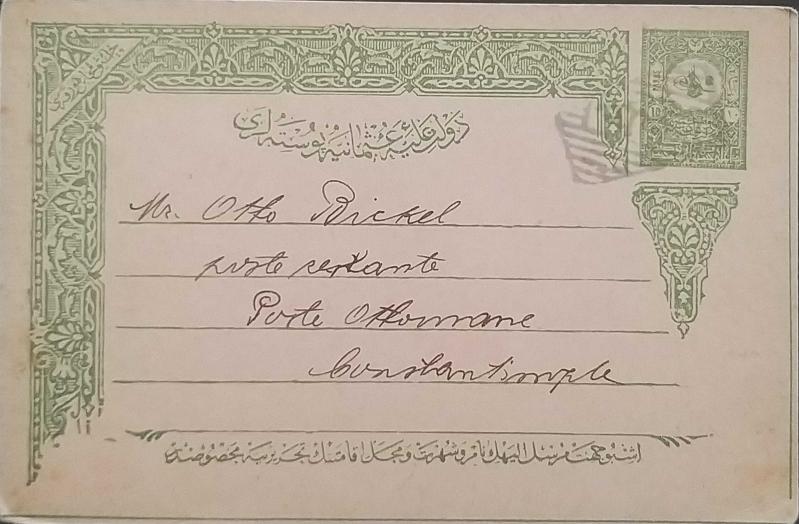 دولت عليه عثمانيه پوسته لرى
10
١٠
Mr. Otto Bickel
poste restante
Poste Ottomane
Constantinople
اشبو جهت مرسل اليهك نام و شهرت و محل اقامتنك تحريرينه مخصوصدر